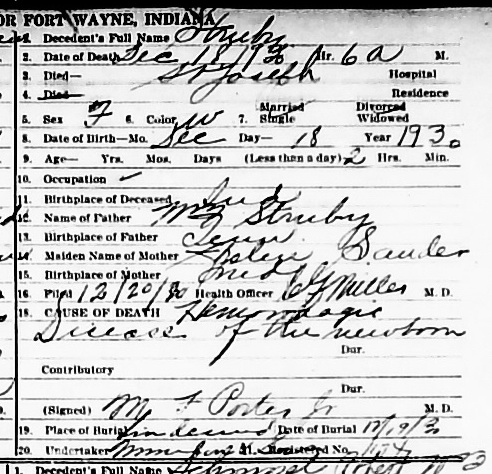 OR FORT WAYNE, INDIANA
1. Decedent's Full Name Struby
2. Date of Death Dec 18 1930 Hr. 6 A M.
3. Died— St Joseph Hospital
4. Died— Residence
5. Sex F 6. Color W 7. Married Single Divorced Widowed
8. Date of Birth—Mo. Dec Day— 18 Year 1930
9. Age— Yrs. Mos. Days (Less than a day) 2 Hrs. Min.
10. Occupation
11. Birthplace of Deceased Ind
12. Name of Father Struby
13. Birthplace of Father
14. Maiden Name of Mother Sauder
15. Birthplace of Mother Ind
16. Filed 12/20/30 Health Officer Miller M. D.
18. CAUSE OF DEATH Hemorrhagic
Disease of the newborn
Dur.
Contributory
Dur.
(Signed) M F Porter Jr M. D.
19. Place of Burial Lindenwood Date of Burial 12/19/30
20. Undertaker 21. Registered No.
1. Decedent's Full Name